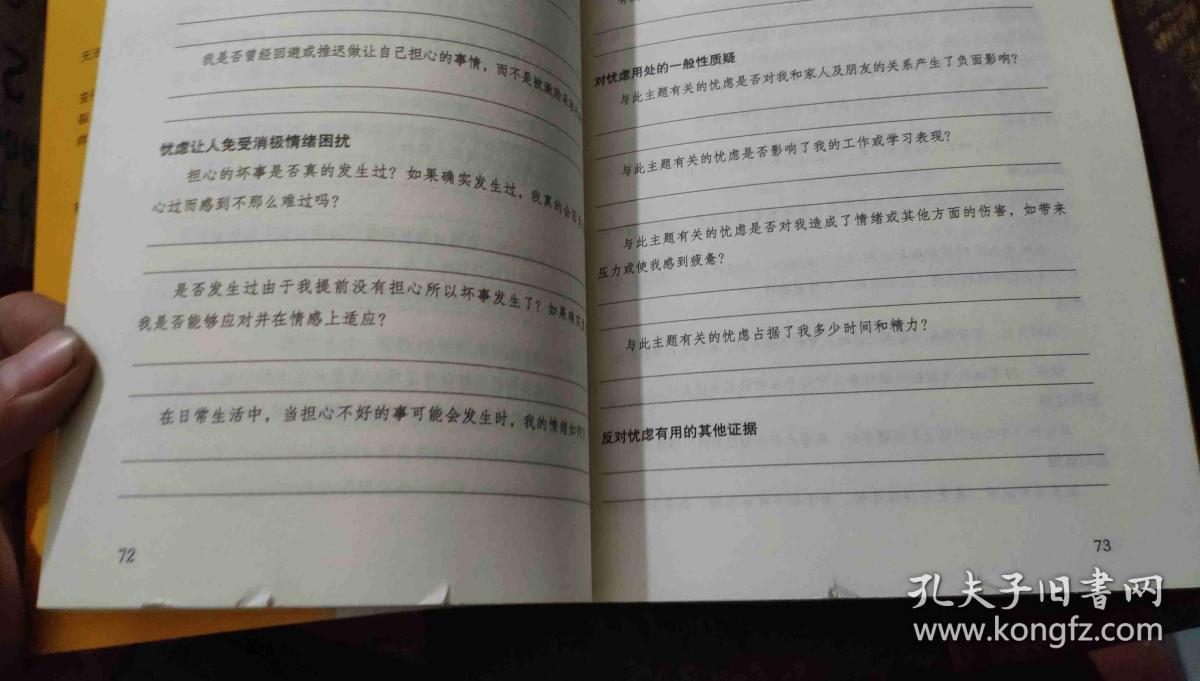 我是否曾经回避或推迟做让自己担心的事情，而不是被激励采
忧虑让人免受消极情绪困扰
担心的坏事是否真的发生过？如果确实发生过，我真的会
心过而感到不那么难过吗？
是否发生过由于我提前没有担心所以坏事发生了？如果确实
我是否能够应对并在情感上适应？
在日常生活中，当担心不好的事可能会发生时，我的情绪如何？
72
对忧虑用处的一般性质疑
与此主题有关的忧虑是否对我和家人及朋友的关系产生了负面影响？
与此主题有关的忧虑是否影响了我的工作或学习表现？
与此主题有关的忧虑是否对我造成了情绪或其他方面的伤害，如带来
压力或使我感到疲惫？
与此主题有关的忧虑占据了我多少时间和精力？
反对忧虑有用的其他证据
73
孔夫子旧书网
www.kongfz.com